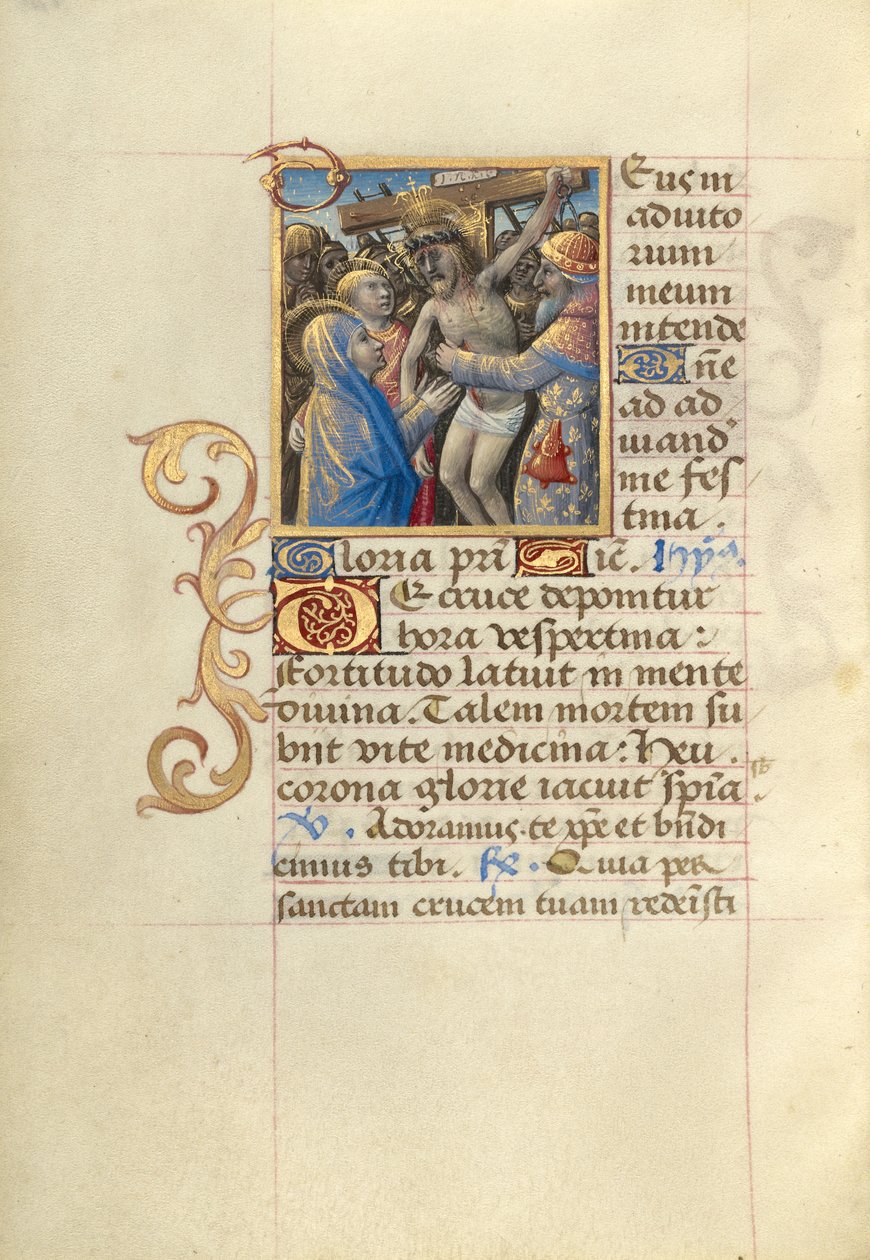 I.N.R.I
Deus in
adiuto
rium
meum
intende
Dñe
ad ad
iuuand᷒
me fes
tina.
Gloria prī Sic̄. hyp̄s.
DE cruce deponitur
hora vespertina:
Fortitudo latuit in mente
diuina. Talem mortem su
biit vite medicina: Heu.
corona glorie iacuit sp̄ia.
V. Adoramus te xp̄e et bn̄di
cimus tibi. R. Quia per
sanctam crucem tuam redem̄sti